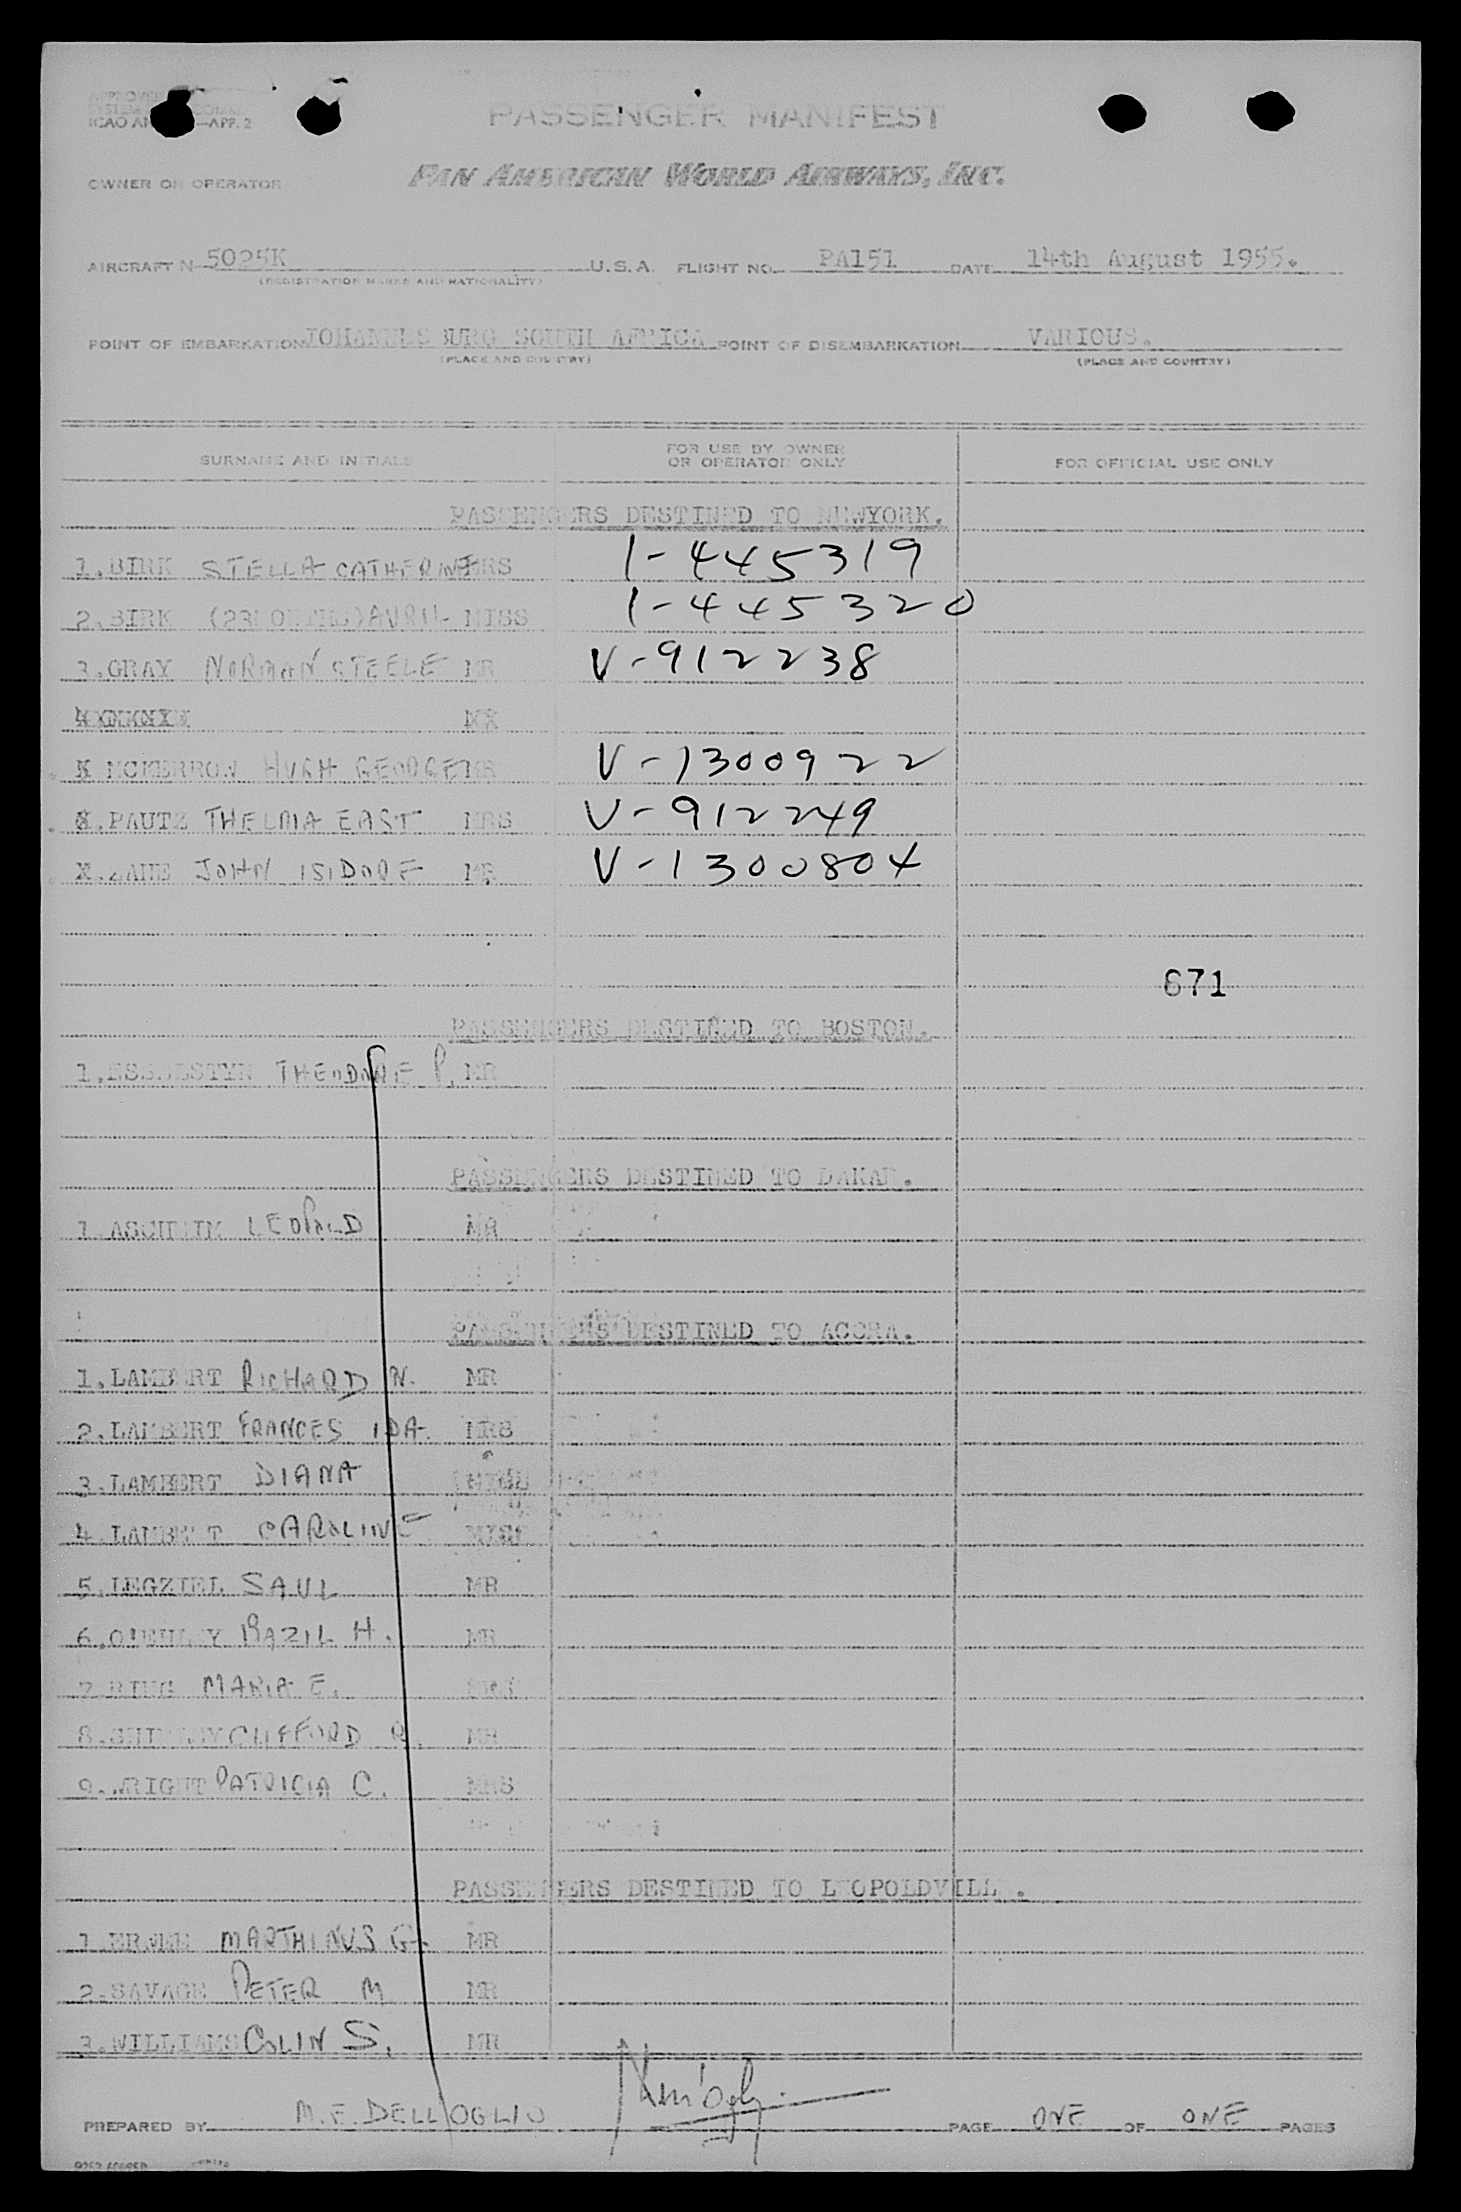 PASSENGER MANIFEST
ICAO —APP. 2
OWNER OR OPERATOR PAN AMERICAN WORLD AIRWAYS, INC.
AIRCRAFT N 5025K U.S.A. FLIGHT NO. PA151 DATE 14th August 1955.
(REGISTRATION MARKS AND NATIONALITY)
POINT OF EMBARKATION JOHANNESBURG SOUTH AFRICA POINT OF DISEMBARKATION VARIOUS.
(PLACE AND COUNTRY) (PLACE AND COUNTRY)
SURNAME AND INITIALS FOR USE BY OWNER OR OPERATOR ONLY FOR OFFICIAL USE ONLY
PASSENGERS DESTINED TO NEWYORK.
1.BIRK STELLA CATHERINE MRS 1-445319
2.BIRK (23MONTHS) AVRIL MISS 1-445320
3.GRAY NORMAN STEELE MR V-912238
MCMERRON HUGH GEORGE MR V-1300922
PAUTZ THELMA EAST MRS V-912249
JOHN ISIDORE MR V-1300804
671
PASSENGERS DESTINED TO BOSTON.
1. THEODORE P. MR
PASSENGERS DESTINED TO DAKAR.
1. LEOPOLD MR
PASSENGERS DESTINED TO ACCRA.
1.LAMBERT RICHARD N. MR
2.LAMBERT FRANCES IDA. MRS
3.LAMBERT DIANA
4.LAMBERT CAROLINE MISS
5.LEGZIEL SAUL MR
6. BAZIL H. MR
7. MARIA E.
8. CLIFFORD R. MR
9.WRIGHT PATRICIA C. MRS
PASSENGERS DESTINED TO LEOPOLDVILLE.
1. MARTHINUS G. MR
2.SAVAGE PETER M MR
3.WILLIAMS COLIN S. MR
PREPARED BY M.E. DELL'OGLIO PAGE ONE OF ONE PAGES